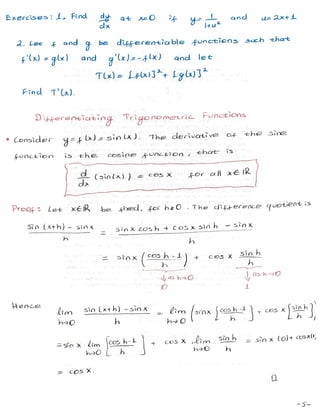 Exercises: 1. Find dy/dx at x=0 if y = 1/(1+u²) and u = 2x+1
2. Let f and g be differentiable functions such that
f'(x) = g(x) and g'(x) = -f(x) and let
T(x) = [f(x)]² + [g(x)]²
Find T'(x).
Differentiating Trigonometric Functions
• Consider y = f(x) = sin(x). The derivative of the sine
function is the cosine function, that is
d/dx (sin(x)) = cos x for all x∈ℝ
Proof: Let x∈ℝ be fixed, for h≠0. The difference quotient is
sin(x+h) - sin x / h = sin x cosh + cos x sin h - sin x / h
= sin x (cosh - 1 / h) + cos x sin h / h
↓ as h→0 ↓ as h→0
0 1
Hence lim h→0 sin(x+h) - sin x / h = lim h→0 (sin x [cosh-1 / h] + cos x [sinh / h])
= sin x lim h→0 [cosh-1 / h] + cos x lim h→0 sinh / h = sin x (0) + cos x(1)
= cos x.
□
-5-